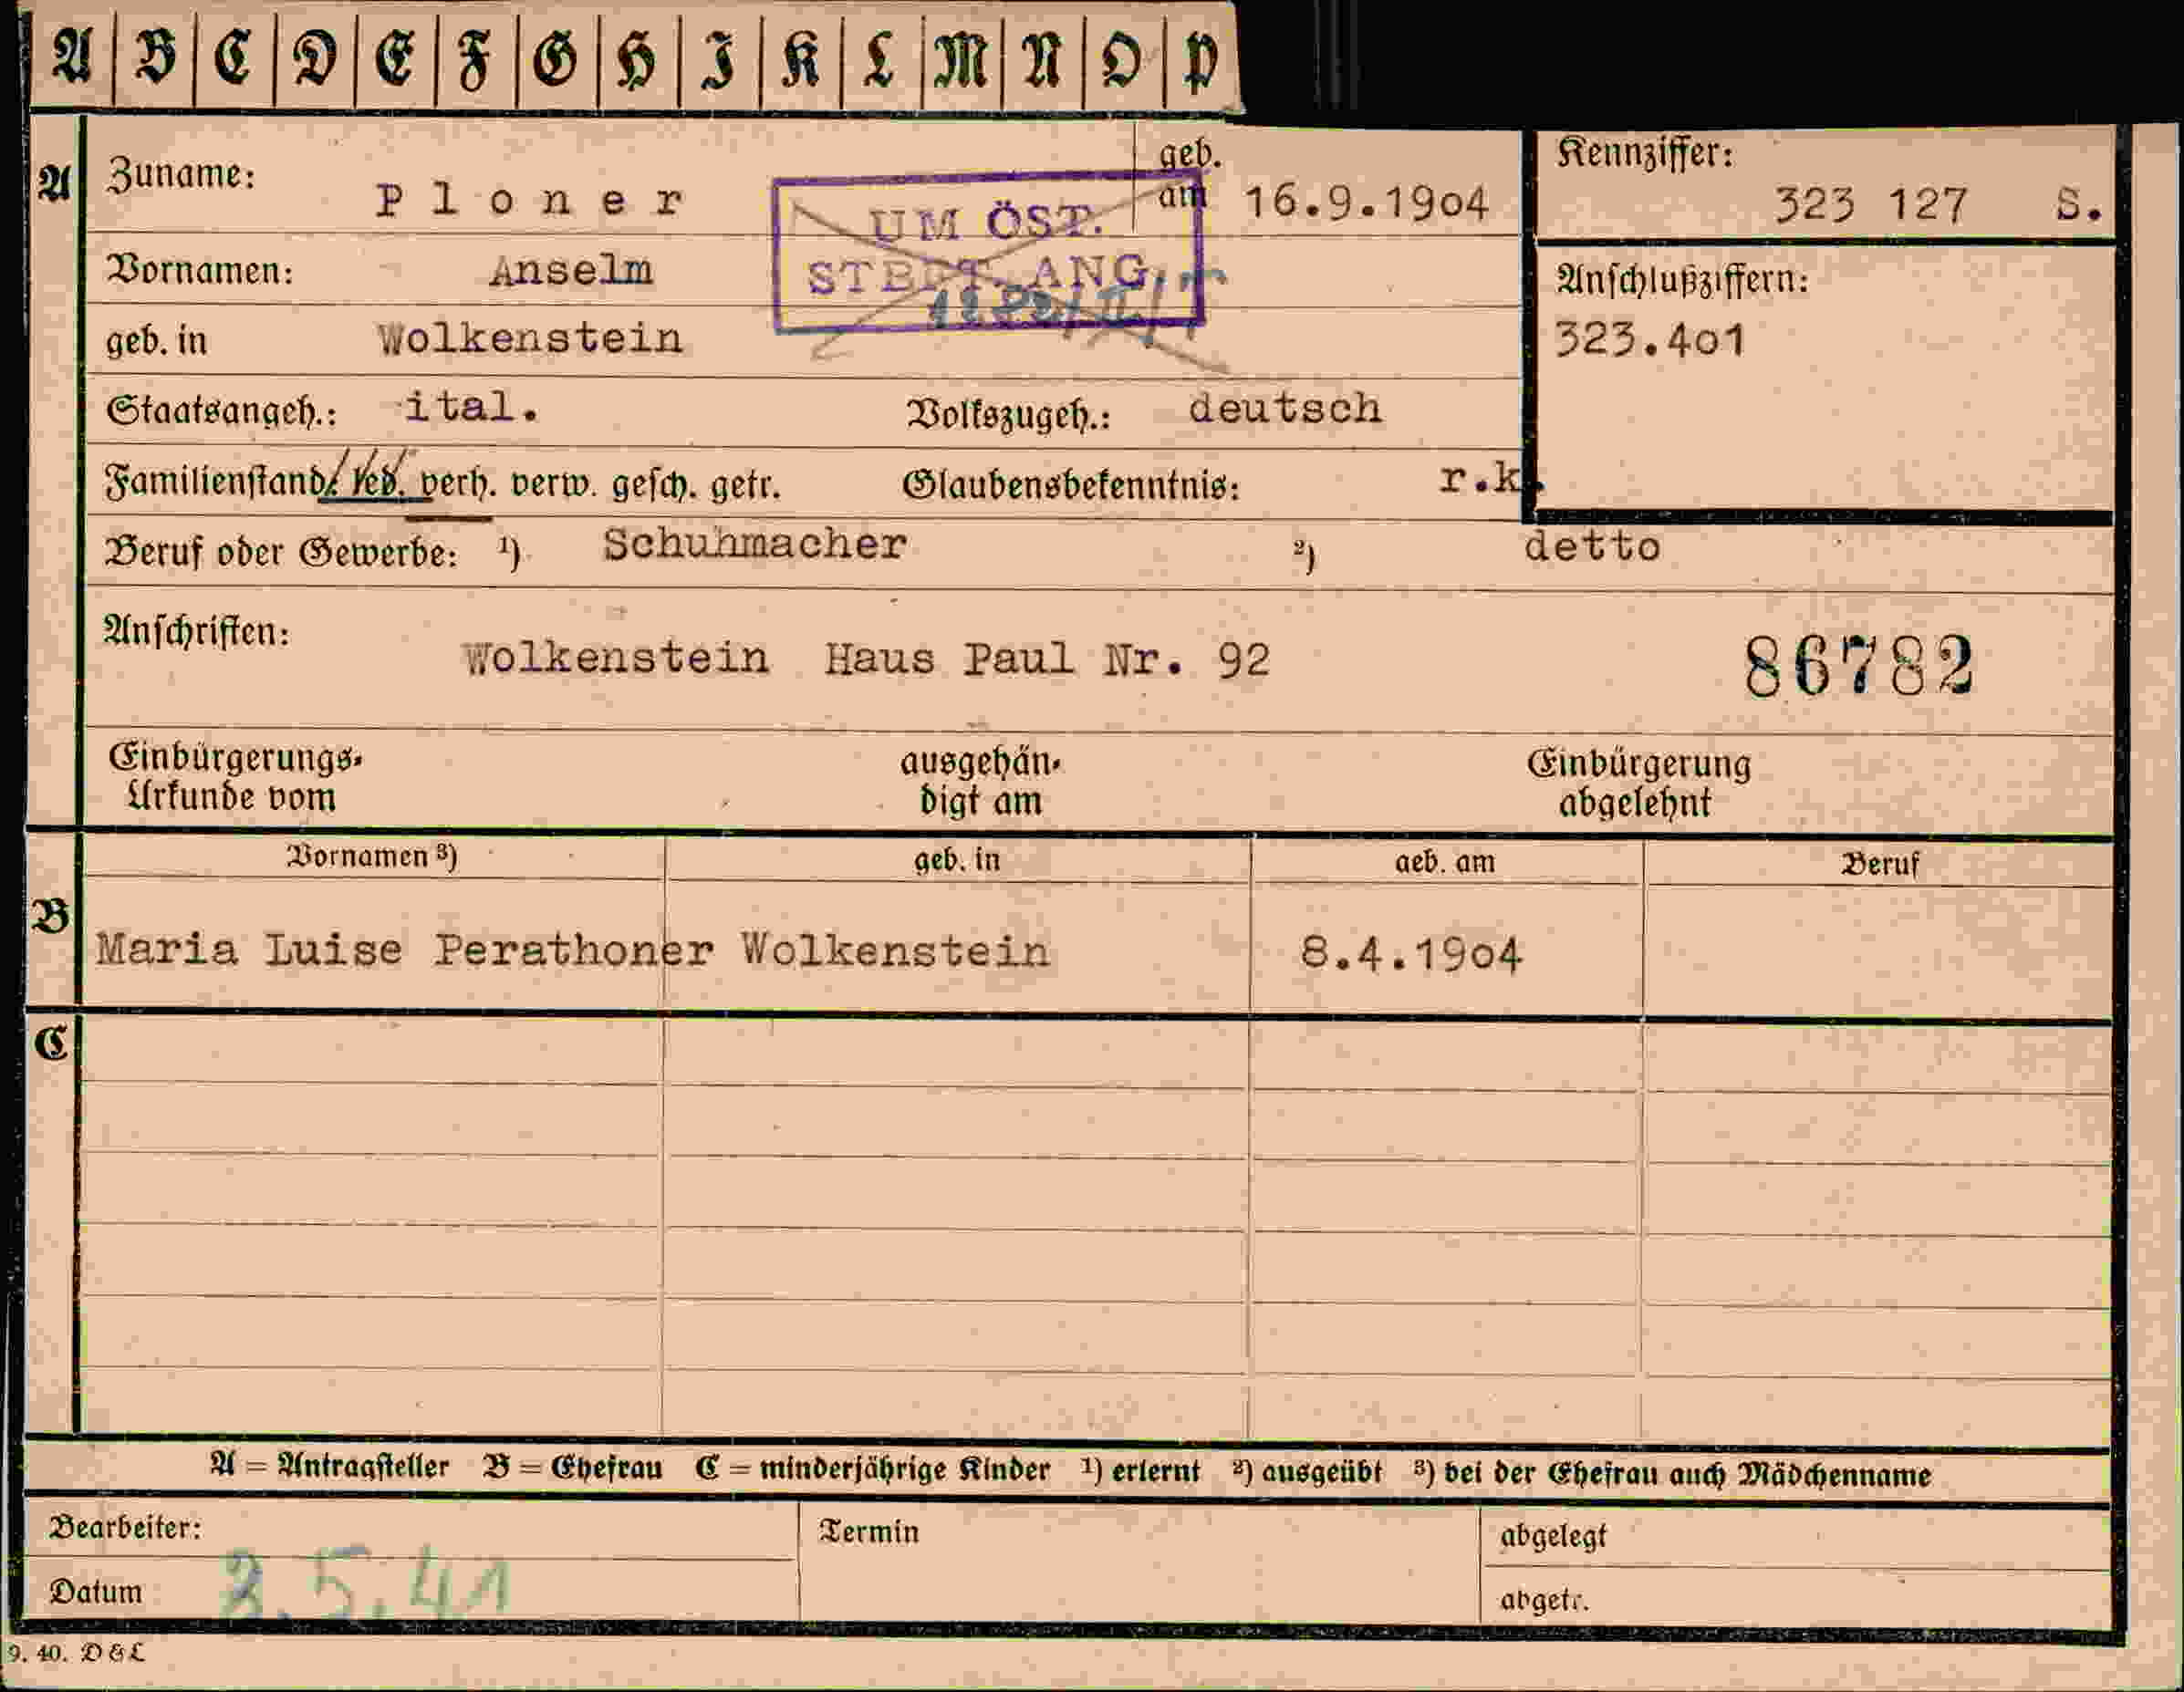 A B C D E F G H I K L M N O P
A Zuname: Ploner geb. am 16.9.1904
Kennziffer: 323 127 S.
UM ÖST. STBT. ANG.
Vornamen: Anselm
Anschlußziffern:
323.401
geb. in Wolkenstein
Staatsangeh.: ital. Volkszugeh.: deutsch
Familienstand: led. verh. verw. gesch. getr. Glaubensbekenntnis: r.k.
Beruf oder Gewerbe: ¹) Schuhmacher ²) detto
Anschriften: Wolkenstein Haus Paul Nr. 92 86782
Einbürgerungs-Urkunde vom ausgehändigt am Einbürgerung abgelehnt
Vornamen ³) geb. in geb. am Beruf
B Maria Luise Perathoner Wolkenstein 8.4.1904
C
A = Antragsteller B = Ehefrau C = minderjährige Kinder ¹) erlernt ²) ausgeübt ³) bei der Ehefrau auch Mädchenname
Bearbeiter: Termin abgelegt
Datum 8.5.41 abgetr.
9. 40. D & L